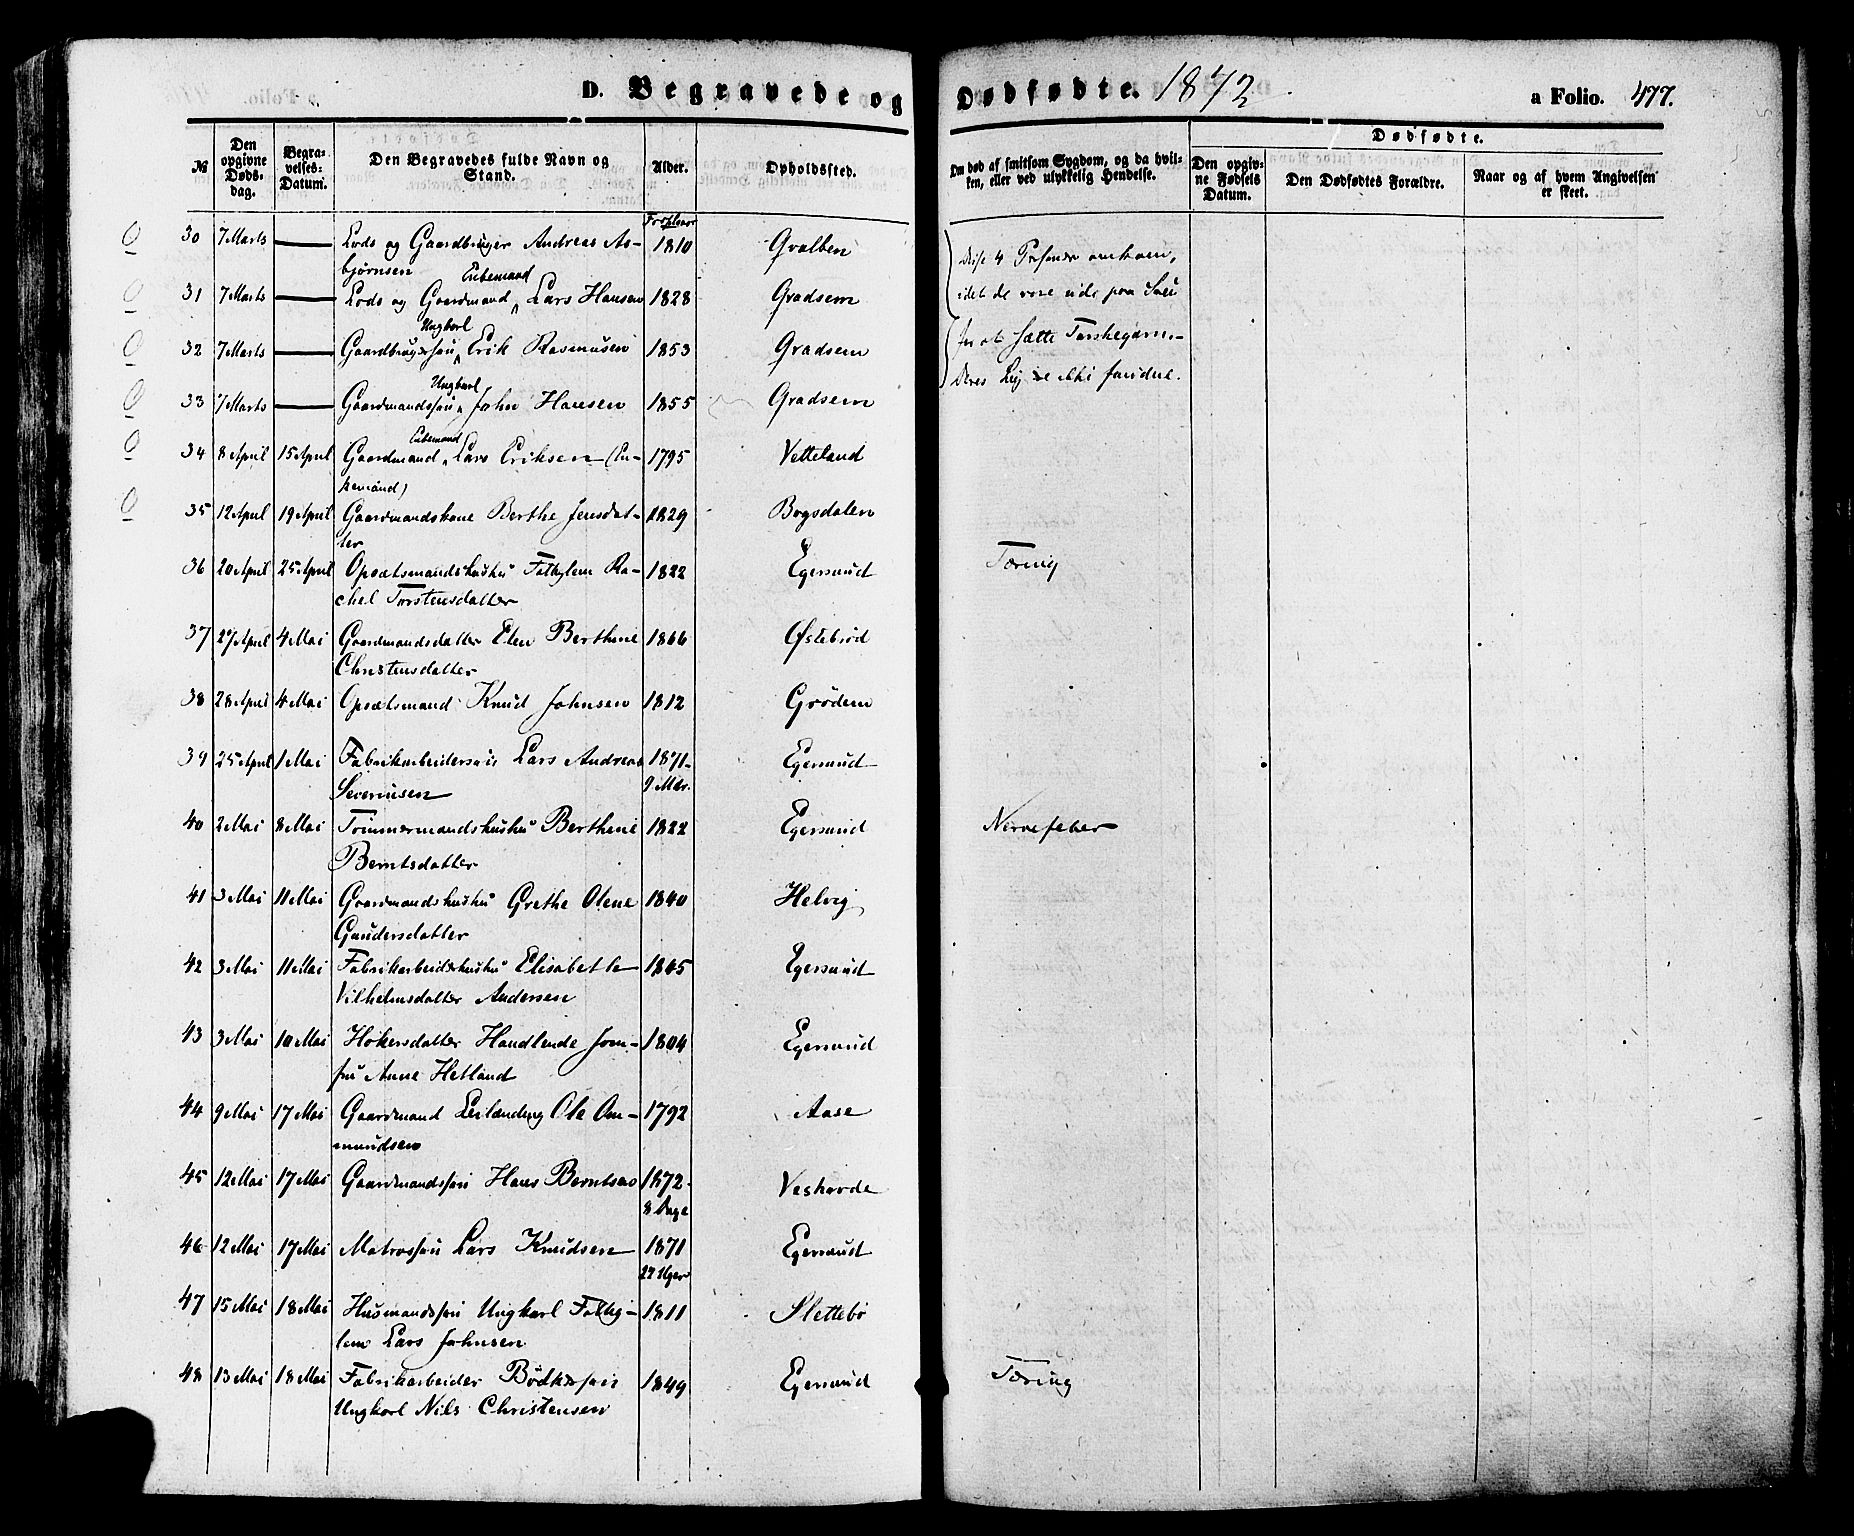 D. Begravede og Dødfødte. 1872. a Folio. 477.
№
Den opgivne Døds-dag.
Begra-velses-Datum.
Den Begravedes fulde Navn og Stand.
Alder.
Opholdssted.
Om død af smitsom Sygdom, og da hvil-
ken, eller ved ulykkelig Hendelse.
Dødfødte.
Den opgiv-ne Fødsels Datum.
Den Dødfødtes Forældre.
Naar og af hvem Angivelsen er skeet.
30 7 Marts — Lods og Gaardbruger Andreas As- 1810 Gvalben
bjørnsen
Enkemand
31 7 Marts — Lods og Gaardmand Lars Hansen 1828 Gradsem
Ungkarl
32 7 Marts — Gaardbrugerssøn Erik Rasmusen 1853 Gradsem
Ungkarl
33 7 Marts — Gaardmandssøn John Hansen 1855 Gradsem
Disse 4 Personer omkom,
idet de vare ude paa Søen
for at sætte Torskegarn.
Deres Lig ere ikke fundne.
Enkemand
34 8 April 15 April Gaardmand Lars Eriksen (En- 1795 Vetteland
kemand)
35 12 April 19 April Gaardmandskone Berthe Jensdat- 1829 Bogsdalen
ter
36 20 April 25 April Opsætsmandshustru Fattiglem Ra- 1822 Egersund Tæring
chel Torstensdatter
37 27 April 4 Mai Gaardmandsdatter Elen Berthine 1866 Østebrød
Christensdatter
38 28 April 4 Mai Opsætsmand Knud Johnsen 1812 Grødem
39 25 April 1 Mai Fabrikarbeidersøn Lars Andreas 1871 Egersund
Severinsen 9 Mdr.
40 2 Mai 8 Mai Tømmermandshustru Berthine 1822 Egersund Nervefeber
Berntsdatter
41 3 Mai 11 Mai Gaardmandshustru Grethe Olene 1840 Helvig
Gundersdatter
42 3 Mai 11 Mai Fabrikarbeiderhustru Elisabeth 1845 Egersund
Vilhelmsdatter Andersen
43 3 Mai 10 Mai Høkersdatter Handlende Jom- 1804 Egersund
fru Anne Hetland
44 9 Mai 17 Mai Gaardmand Leilænding Ole Om- 1792 Aase
mundsen
45 12 Mai 17 Mai Gaardmandssøn Hans Berntsen 1872 Veshovde
8 Dage
46 12 Mai 17 Mai Matrossøn Lars Knudsen 1871 Egersund
27 Uger
47 15 Mai 18 Mai Husmandssøn Ungkarl Fattig- 1811 Slettebø
lem Lars Johnsen
48 13 Mai 18 Mai Fabrikarbeider Bødkersøn 1849 Egersund Tæring
Ungkarl Nils Christensen